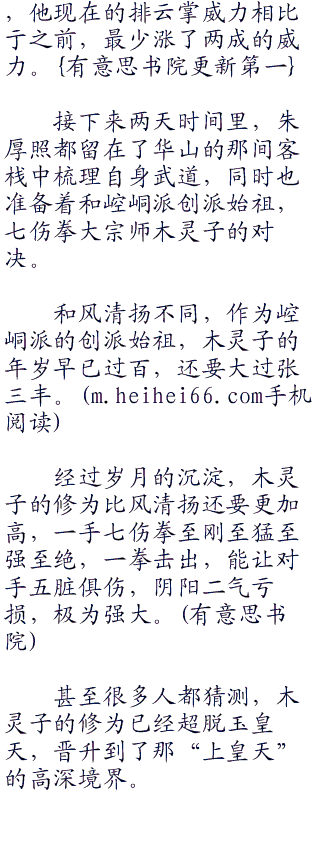 ，他现在的排云掌威力相比
于之前，最少涨了两成的威
力。{有意思书院更新第一}
接下来两天时间里，朱
厚照都留在了华山的那间客
栈中梳理自身武道，同时也
准备着和崆峒派创派始祖，
七伤拳大宗师木灵子的对
决。
和风清扬不同，作为崆
峒派的创派始祖，木灵子的
年岁早已过百，还要大过张
三丰。(m.heihei66.com手机
阅读)
经过岁月的沉淀，木灵
子的修为比风清扬还要更加
高，一手七伤拳至刚至猛至
强至绝，一拳击出，能让对
手五脏俱伤，阴阳二气亏
损，极为强大。(有意思书
院)
甚至很多人都猜测，木
灵子的修为已经超脱玉皇
天，晋升到了那“上皇天”
的高深境界。